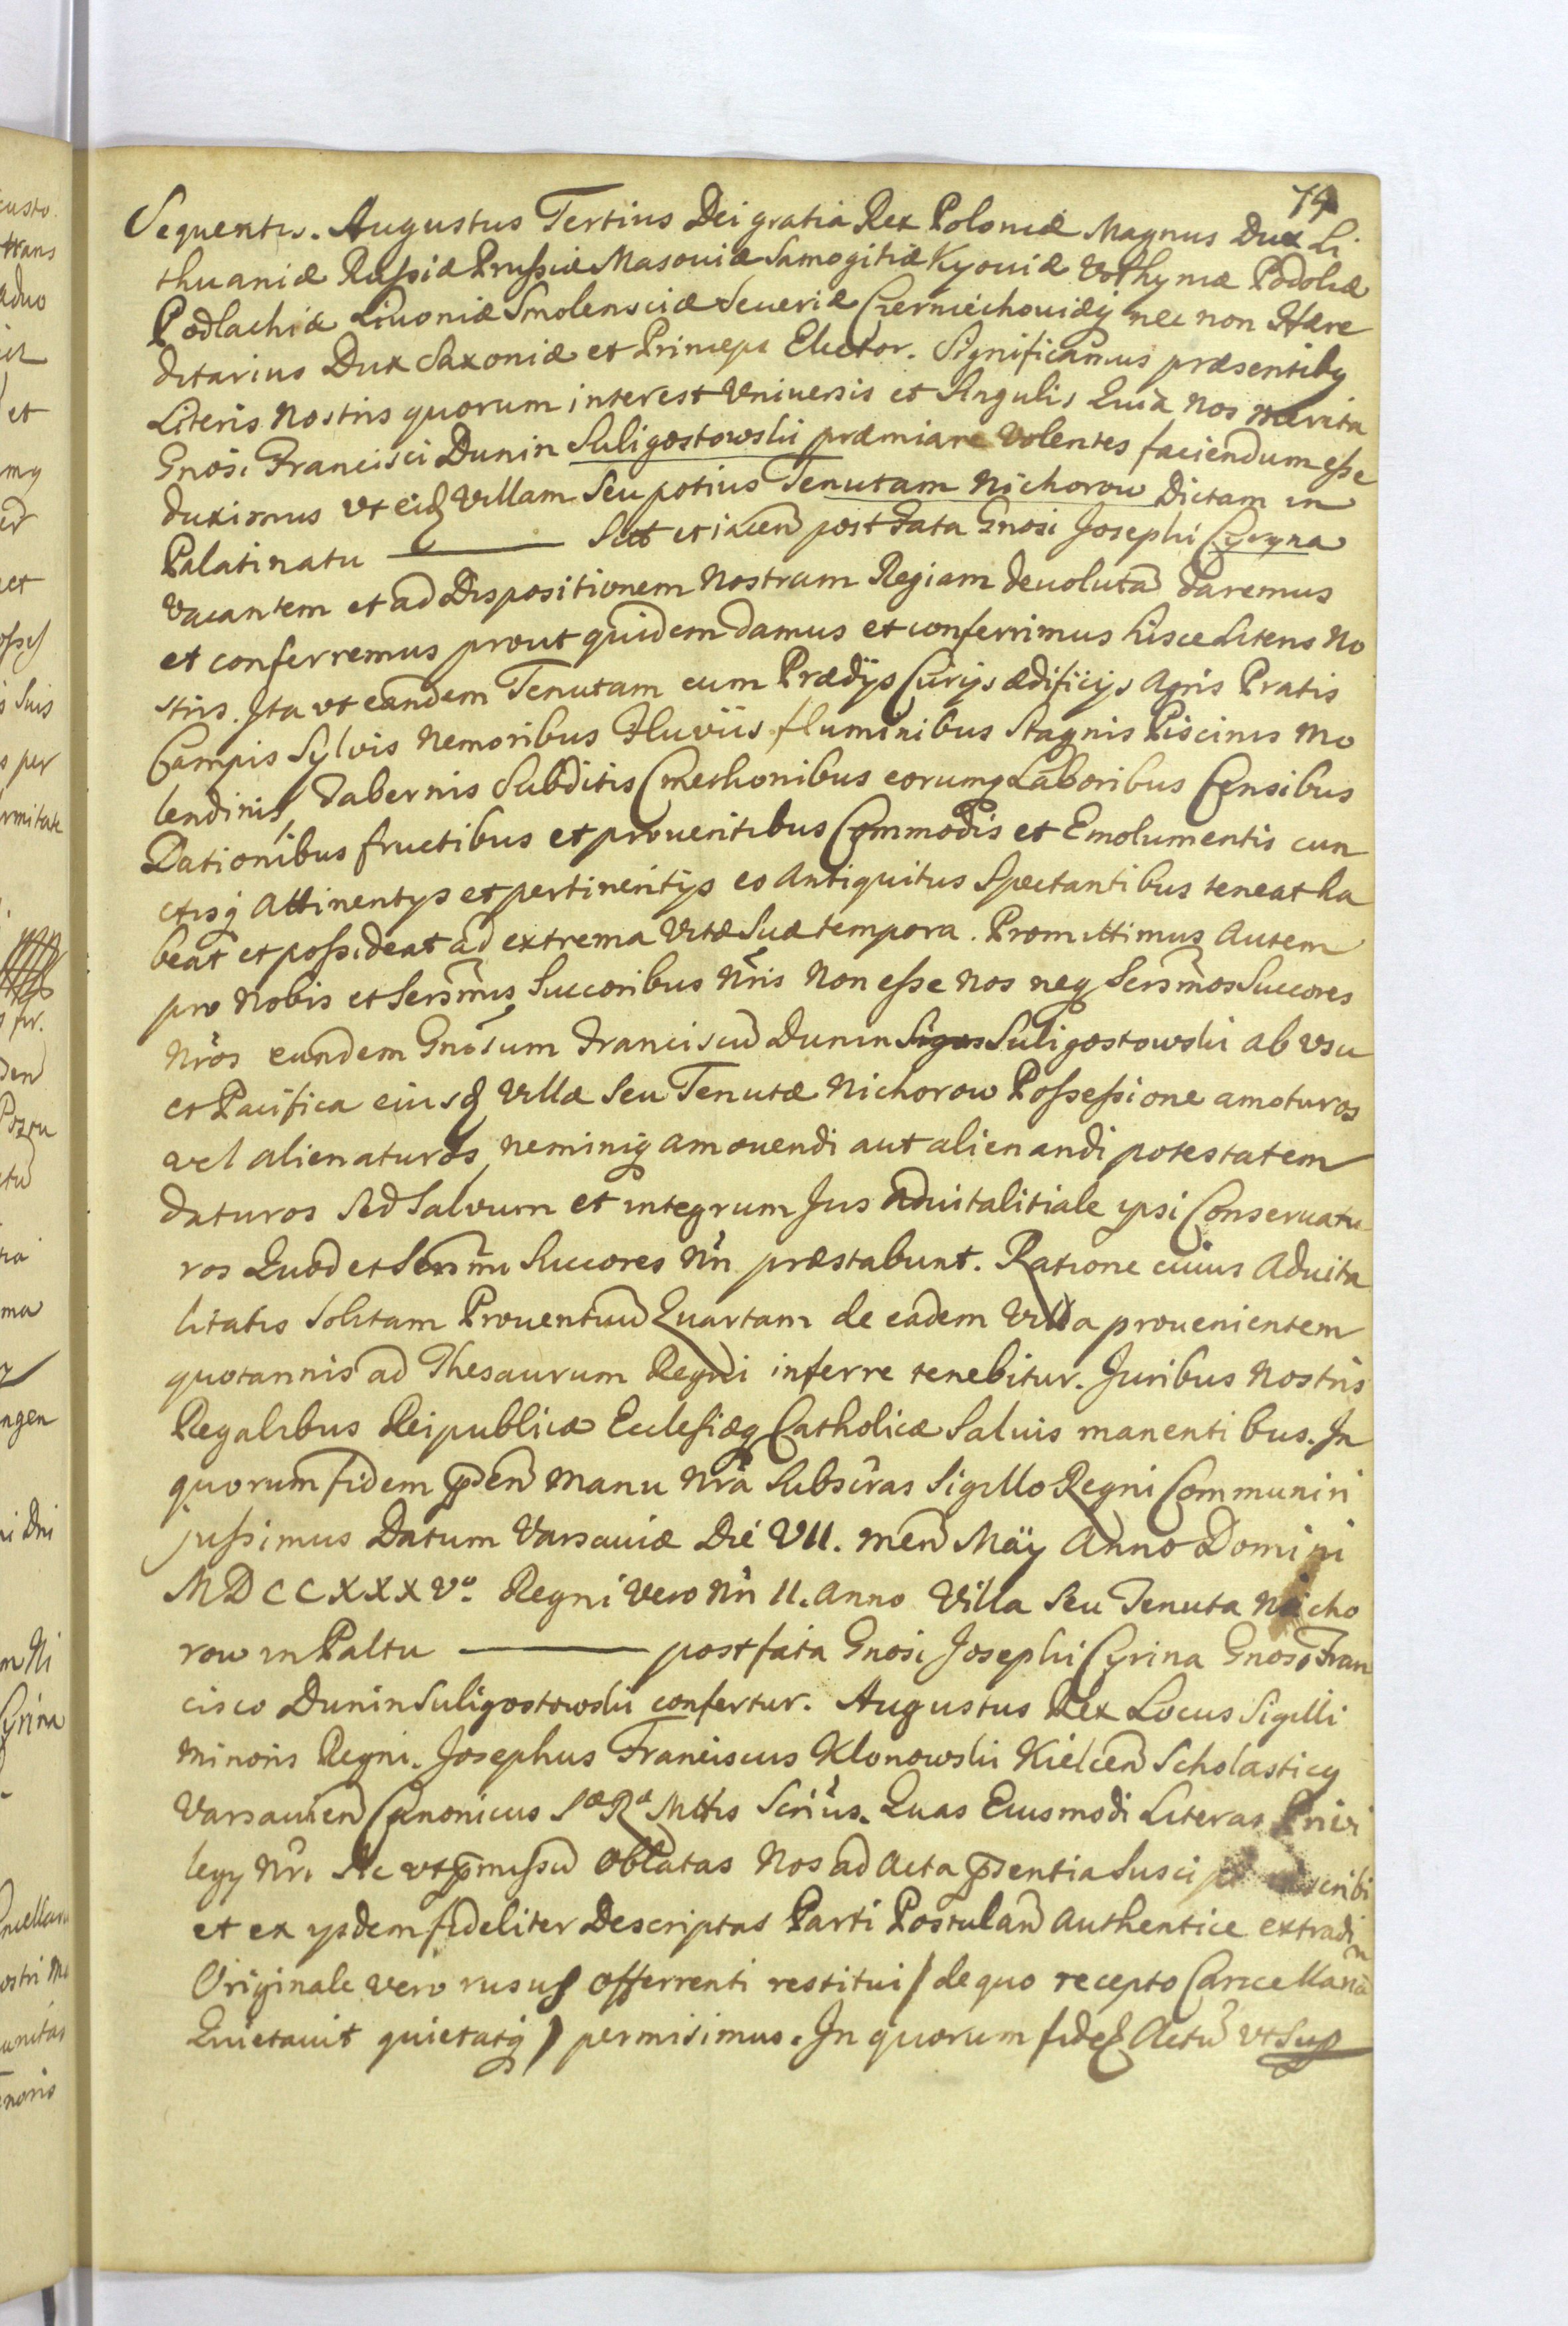 74
Sequentis. Augustus Tertius Dei gratia Rex Poloniæ Magnus Dux Li
thuaniæ Russiæ Prussiæ Masouiæ Samogitiæ Kyouiæ Volhyniæ Podoliæ
Podlachiæ Liuoniæ Smolensciæ Seueriæ Czerniechouiæq nec non Hære
ditarius Dux Saxoniæ et Princeps Elector. Significamus præsentibq
Literis Nostris quorum interest Vniuersis et Singulis Quia Nos merita
Gnosi Francisci Dunin Suligostowski præmiare Volentes faciendum esse
duximus vt eid Villam Seu potius Tenutam Nichorow Dictam in
Palatinatu ——— Sitt et iacen post fata Gnosi Josephi Cyryna
Vacantem et ad Dispositionem Nostram Regiam deuolutã daremus
et conferremus prout quidem damus et conferrimus hisce Literis No
stris. Jta vt eandem Tenutam cum Prædijs Curijs ædificijs Agris Pratis
Campis Sylvis Nemoribus Fluviis fluminibus Stagnis Piscinis Mo
lendinis, Tabernis Subditis Cmethonibus eorumq Laboribus Censibus
Dationibus fructibus et prouentibus Commodis et Emolumentis cun
ctisq Attinentys et pertinentijs eo Antiquitus Spectantibus teneat ha
beat et possideat ad extrema Vitæ Suæ tempora. Promittimus Autem
pro Nobis et Sersmis Succoribus Nris Non esse Nos neq Sersmos Succores
Nros eundem Gnosum Franciscũ Dunin Sigos Suligostowski ab vsu
et Pacifica eiusd Villæ Seu Tenutæ Nichorow Possessione amoturos
vel alienaturos, neminiq amouendi aut alienandi potestatem
daturos Sed Salvum et integrum Jus Aduitalitiale ipsi Conseruatu
ros Quod et Sersmi Succores Nri præstabunt. Ratione cuius Aduita
litatis Solitam Prouentuũ Quartam de eadem Villa prouenientem
quotannis ad Thesaurum Regni inferre tenebitur. Juribus Nostris
Regalibus Reipublicæ Ecclesiæq Catholicæ Saluis manentibus. Jn
quorum fidem psen Manu Nra Subscras Sigillo Regni Communiri
jussimus Datum Varsauiæ Die VII. men Maÿ Anno Domini
MDCCXXXVo. Regni Vero Nri II. Anno Villa Seu Tenuta Nicho
row in Paltu ——— post fata Gnosi Josephi Cyrina Gnoso Fran
cisco Dunin Suligostowski confertur. Augustus Rex Locus Sigilli
Minoris Regni. Josephus Franciscus Klonowski Kielcen Scholasticq
Varsauien Canonicus Sæ Ræ Mttis Scrius. Quas Eiusmodi Literas Privi
legy Nri Sic vt pmissũ Oblatas Nos ad Acta psentia Susci scribi
et ex ysdem fideliter Descriptas Parti Postulan Authentice extradi
Originale vero rusus Offerrenti restitui / de quo recepto Cancellariã
Quietauit quietatq / permisimus. In quorum fid Actũ vt Sup